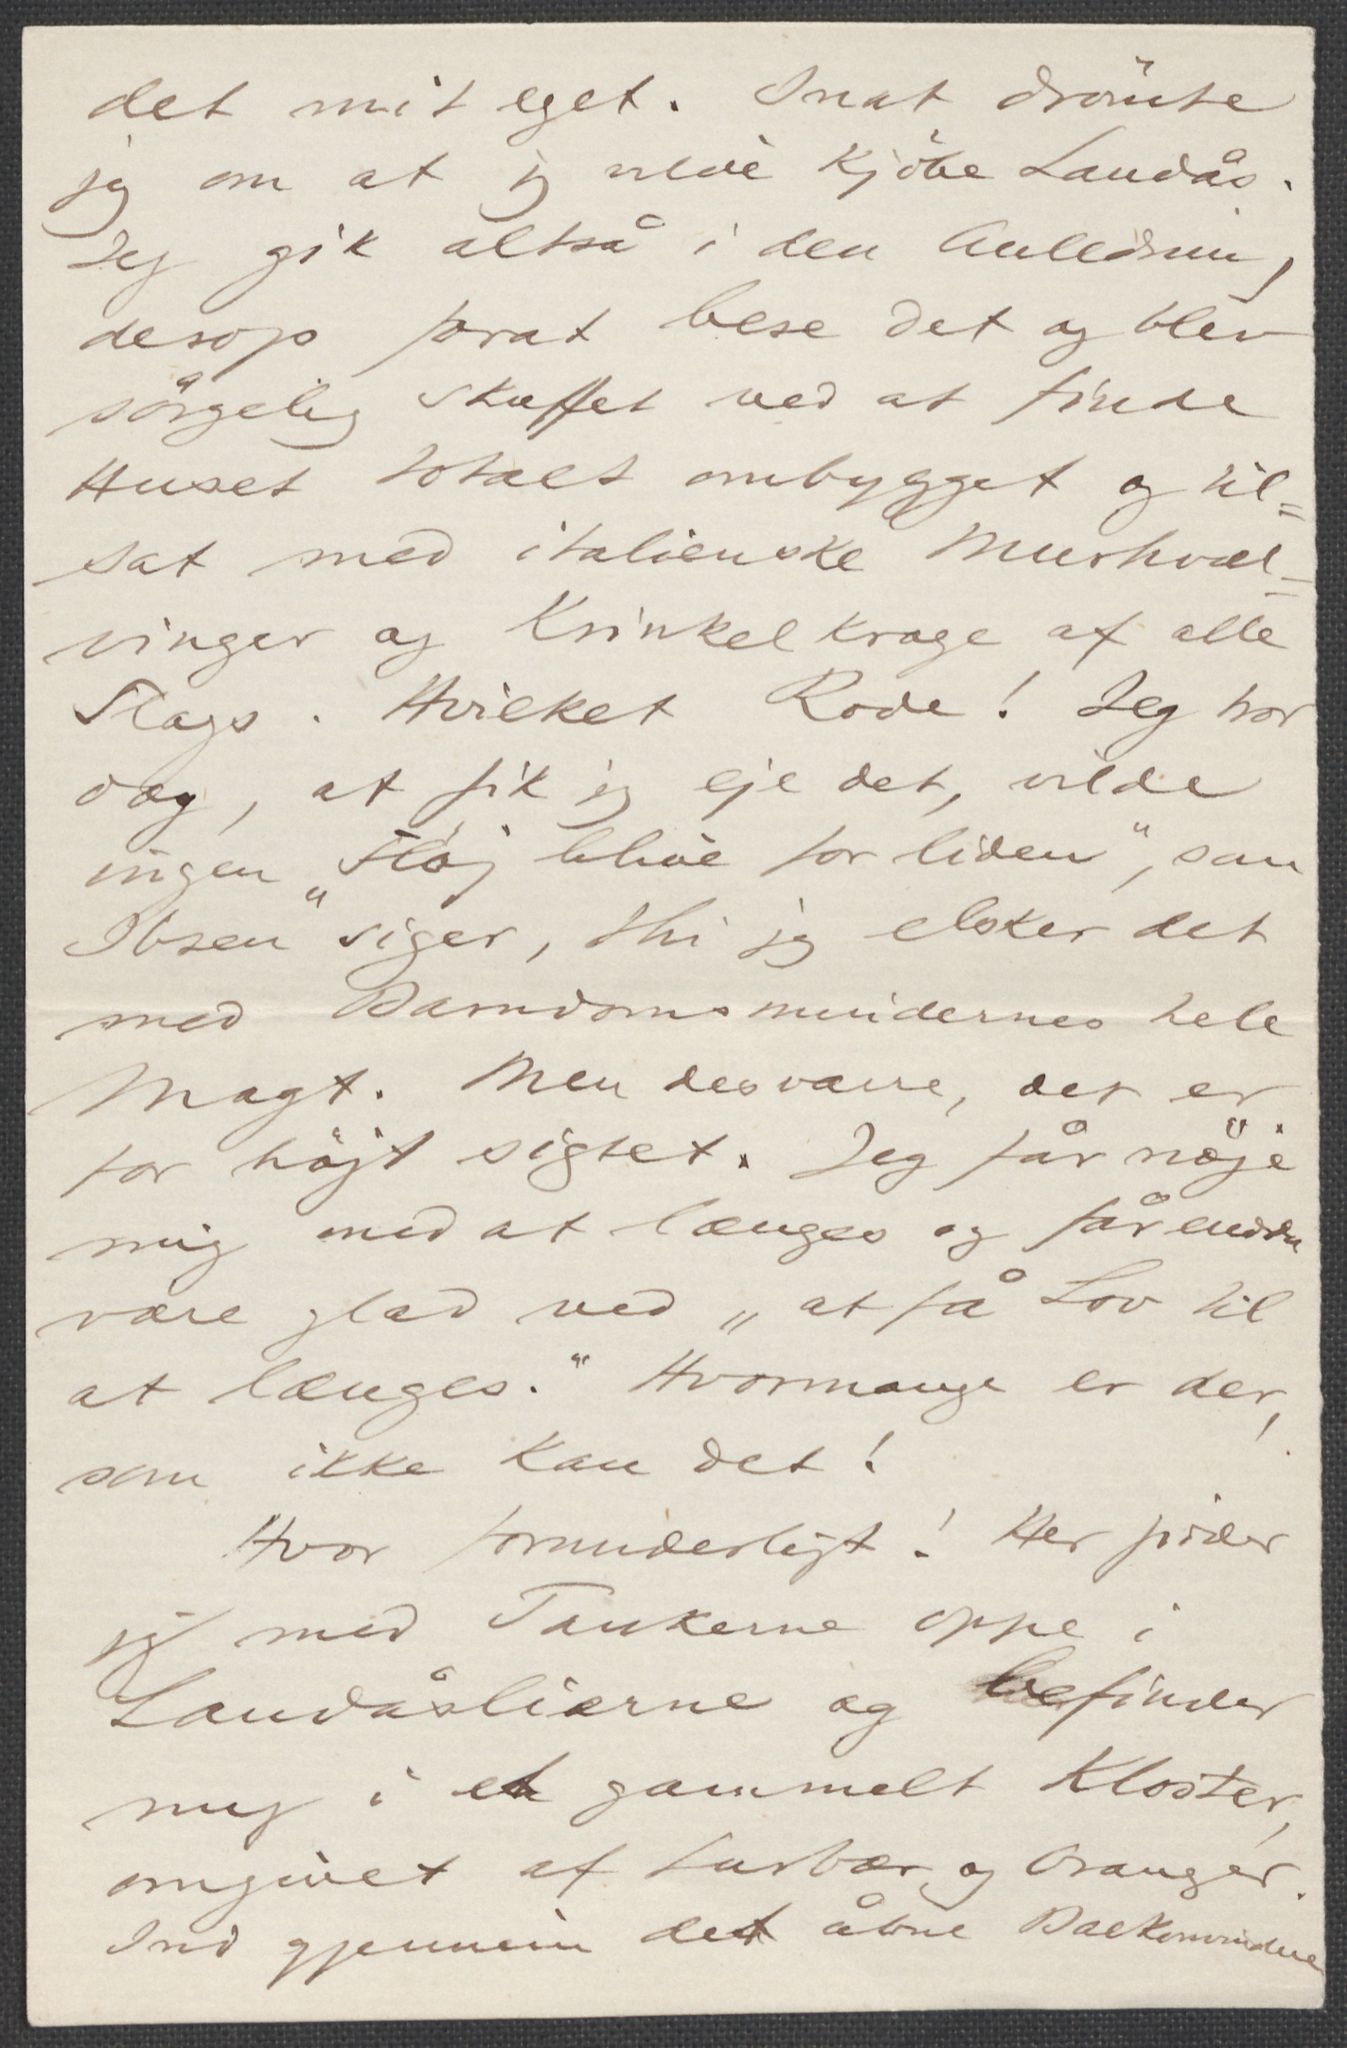 det mit eget. Inat drömte
jeg om at jeg vilde kjöbe Landås.
Jeg gik altså i den
desop forat bese det og blev
sörgelig skuffet ved at finde
Huset totalt ombygget og til=
sat med italienske Murhvæl=
vinger og Krinkelkroge af alle
Slags. Hvilket Rode! Jeg tror
dog, at fik jeg eje det, vilde
ingen „Fløj blive for liden", som
Ibsen siger, thi jeg elsker det
med Barndomsmindernes hele
Magt. Men desværre, det er
for höjt sigtet. Jeg får nöje
mig med at længes og får endda
være glad ved „at få Lov til
at længes." Hvormange er der,
som ikke kan det!
Hvor forunderligt! Her sidder
jeg med Tankerne oppe i
Landåslierne og befinder
mig i et gammelt Kloster,
omgivet af Laurbær og Oranger.
Ind gjennem det åbne